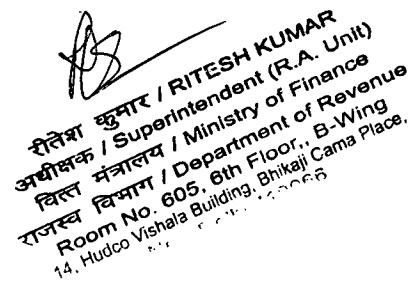 रीतेश कुमार / RITESH KUMAR
अधीक्षक / Superintendent (R.A. Unit)
वित्त मंत्रालय / Ministry of Finance
राजस्व विभाग / Department of Revenue
Room No. 605, 6th Floor,, B-Wing
14, Hudco Vishala Building, Bhikaji Cama Place,